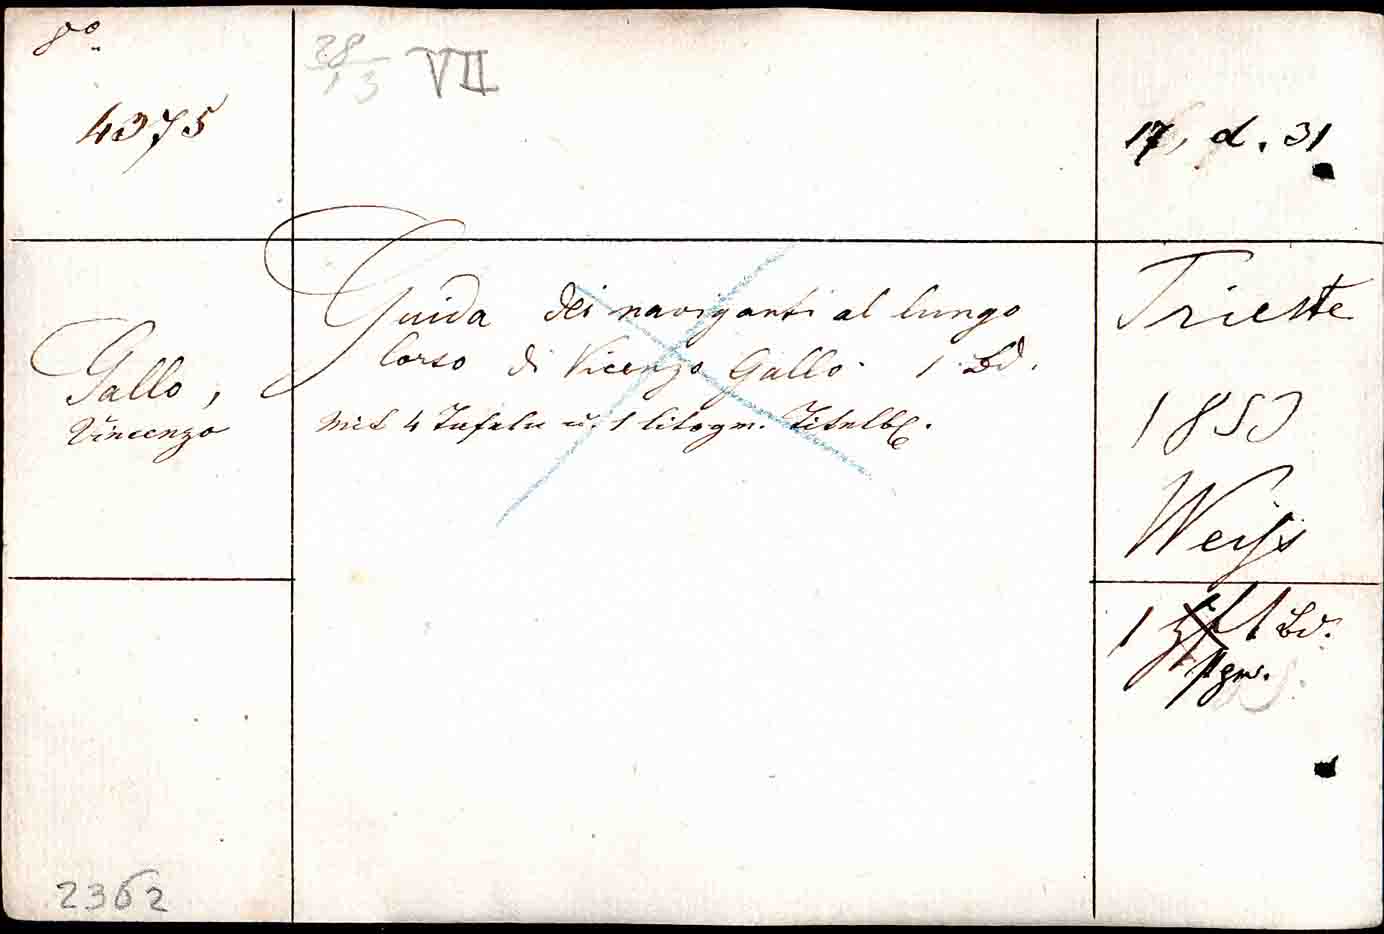 8º
4375
28
13
VII
17, d. 31
Gallo,
Vincenzo
Guida dei naviganti al lungo
Corso di Vicenzo Gallo. 1 Bd.
Mit 4 Tafeln u. 1 litogr. Titelbl.
Trieste
1853
Weiss
1 Hft 1 Bd.
2362